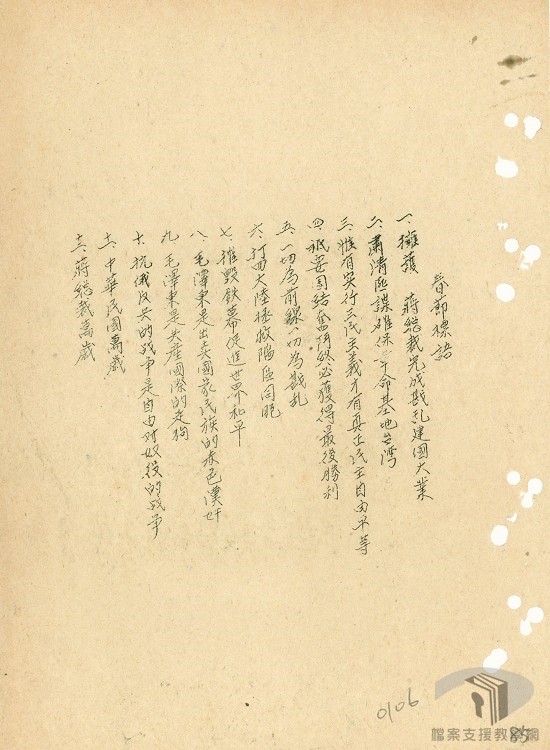 春節標語
一、擁護 蔣總裁完成戡乱建國大業
二、肅清匪諜確保革命基地台湾
三、惟有实行三民主義才有真正民主自由平等
四、祇要团結奮鬥終必獲得最後勝利
五、一切為前線一切為戡乱
六、打回大陸拯救陷區同胞
七、摧毀鉄幕促進世界和平
八、毛澤東是出卖國家民族的赤色漢奸
九、毛澤東是共產國際的走狗
十、抗俄反共的战争是自由对奴役的战争
十一、中華民國萬歲
十二、蔣總裁萬歲
0106
85
檔案支援教學網